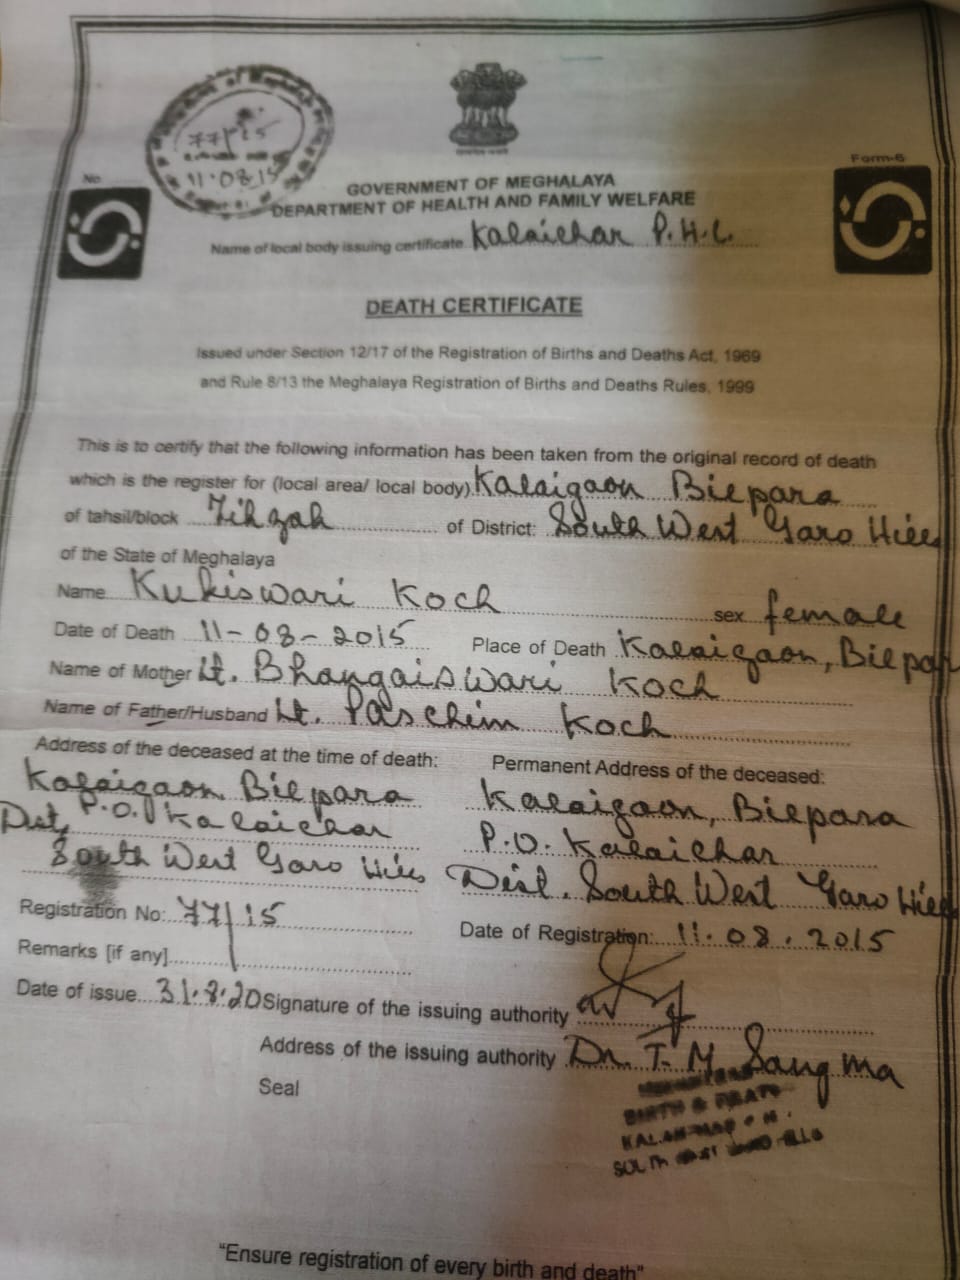 77/15
11.08.15
No
Form-6
GOVERNMENT OF MEGHALAYA
DEPARTMENT OF HEALTH AND FAMILY WELFARE
Name of local body issuing certificate Kalaichar P.H.C.
DEATH CERTIFICATE
Issued under Section 12/17 of the Registration of Births and Deaths Act, 1969
and Rule 8/13 the Meghalaya Registration of Births and Deaths Rules, 1999
This is to certify that the following information has been taken from the original record of death
which is the register for (local area/ local body) Kalaigaon Bielpara
of tahsil/block Zikzak of District: South West Garo Hills
of the State of Meghalaya
Name Kukiswari Koch sex female
Date of Death 11-08-2015 Place of Death Kalaigaon, Bielpar
Name of Mother Lt. Bhangaiswari Koch
Name of Father/Husband Lt. Paschim Koch
Address of the deceased at the time of death: Permanent Address of the deceased:
Kalaigaon Bielpara Kalaigaon, Bielpara
P.O. Kalaichar P.O. Kalaichar
Dist, South West Garo Hills Dist. South West Garo Hills
Registration No: 77/15 Date of Registration: 11.08.2015
Remarks [if any]
Date of issue 31.8.20 Signature of the issuing authority
Address of the issuing authority Dr. T. M. Sangma
Seal
BIRTH & DEATH
"Ensure registration of every birth and death"